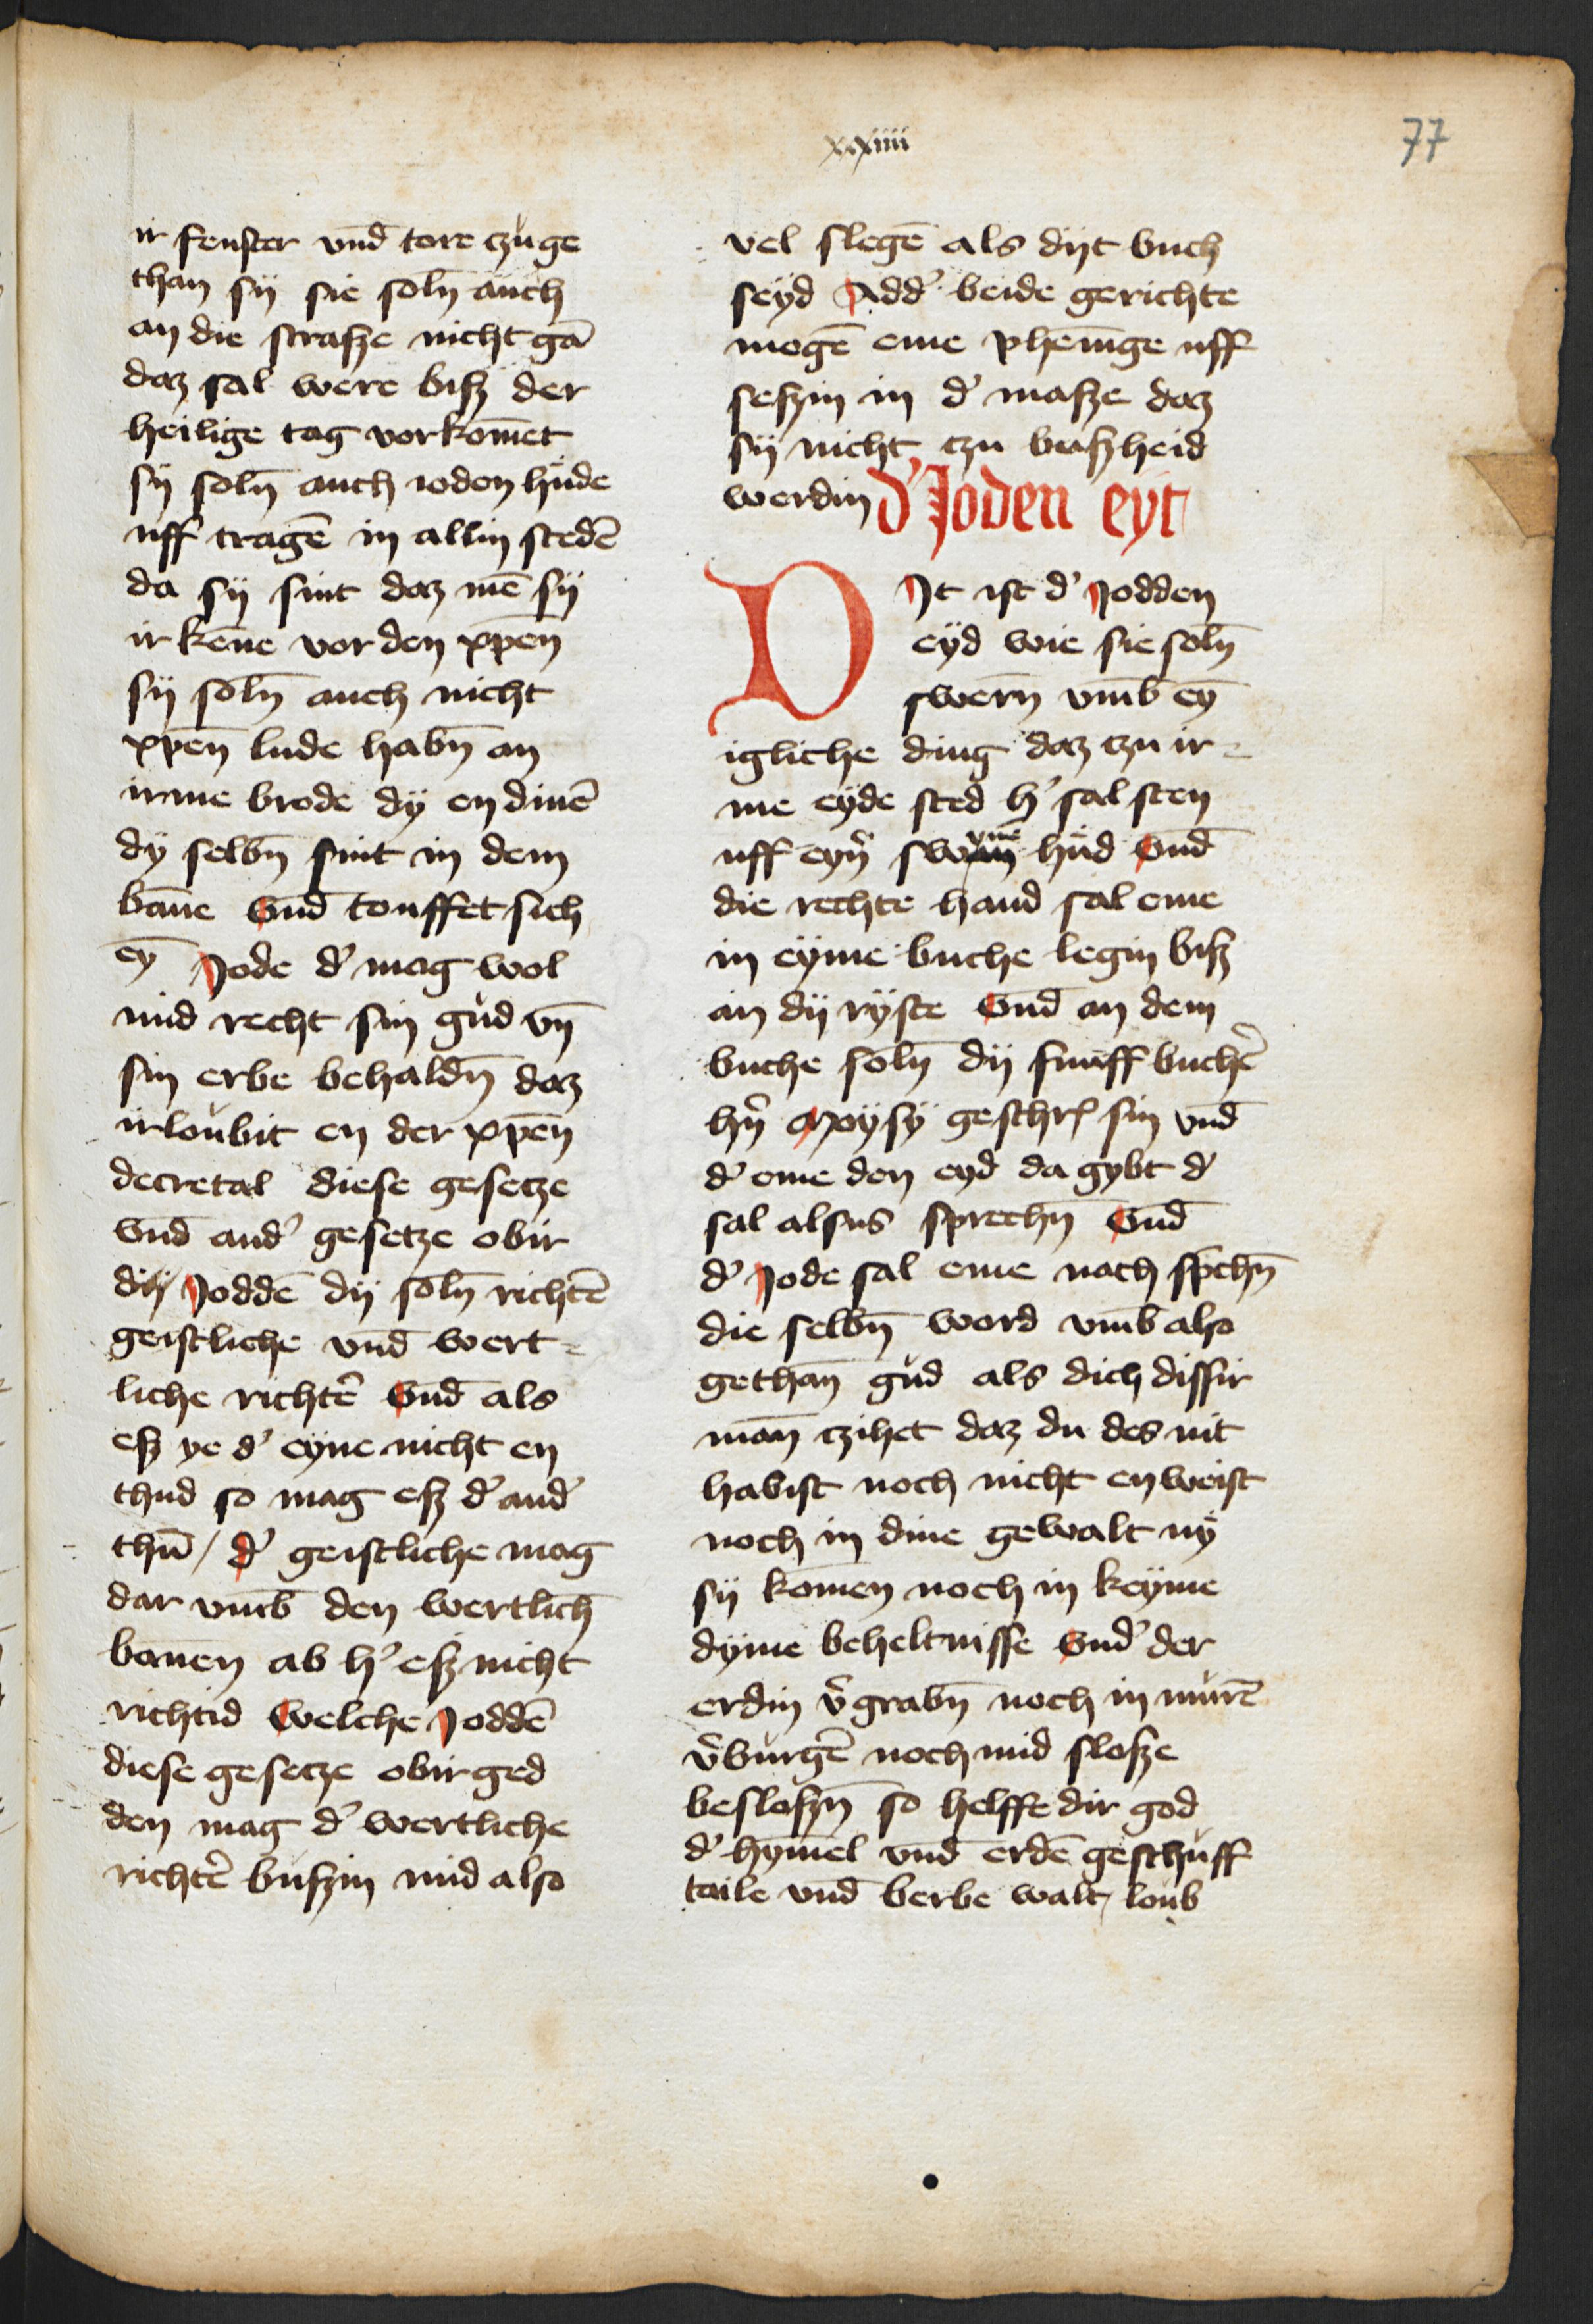 xxxiiii
77
ir fenster vnd̄ tore czůge
than sÿ sie soln̄ auch
an die strasze nicht gā
daz sal were bisz der
heilige tag vorkom̄et
sÿ soln̄ auch ioden hůde
uff tragē in allin stedē
da sÿ sint daz mē sÿ
ir ken̄e vor den xp̄en
sÿ soln̄ auch nicht
xp̄en lude habn̄ an
irme brode dÿ en dinē
dÿ selbn̄ sint in dem
ban̄e Vnd̄ touffet sich
eȳ Jode d' mag wol
mid recht sin gůd vn̄
sin erbe behaldn̄ daz
irloůbit en der xp̄en
decretal diese gesetze
Vnd̄ and' gesetze obir
dÿ Joddē dÿ soln̄ richtē
geistliche vnd̄ wert⸗
liche richt'e Vnd̄ als
esz ye d' eyne nicht en
thud so mag esz d' and'
thū / d' geistliche mag
dar vm̄b den wertlich̄
ban̄en ab h' esz nicht
richtid Welche Joddē
diese gesetze obirged
den mag d' wertliche
richt'e bůszin mid also
vel slegē als dÿt buch
seÿd Add' beide gerichte
mogē eme phen̄ige uff
seszin in d' masze daz
sÿ nicht czu beszheid
werdin d' Joden eyt
DJt ist d' Jodden
eÿd wie sie soln̄
swern̄ vm̄b eȳ
igliche ding daz czu ir⸗
me eÿde sted h' sal sten
uff eyn' swyne hůd Vnd̄
die rechte hand sal eme
in eÿme buche legin bisz
an dÿ rÿste Vnd̄ an dem
buche soln̄ dÿ funff buch'e
hn̄ Moÿsÿ geschr' sin vnd̄
d' eme den eyd da gybt d'
sal alsus sprechn̄ Vnd̄
d' Jode sal eme nach sp̄chn̄
die selbn̄ word vm̄b also
gethan̄ gůd als dich dissir
man̄ czihet daz du des nit
habist noch nicht en weist
noch in dine gewalt nÿ
sÿ kom̄en noch in keÿme
dÿme beheltnisse Vnd' der
erdin v'grabn̄ noch in můrē
v'bůrgē noch mid slosze
besloszn̄ so helffe dir god
d' hym̄el vnd̄ erdē geschůff
taile vnd̄ berbe walt / loub